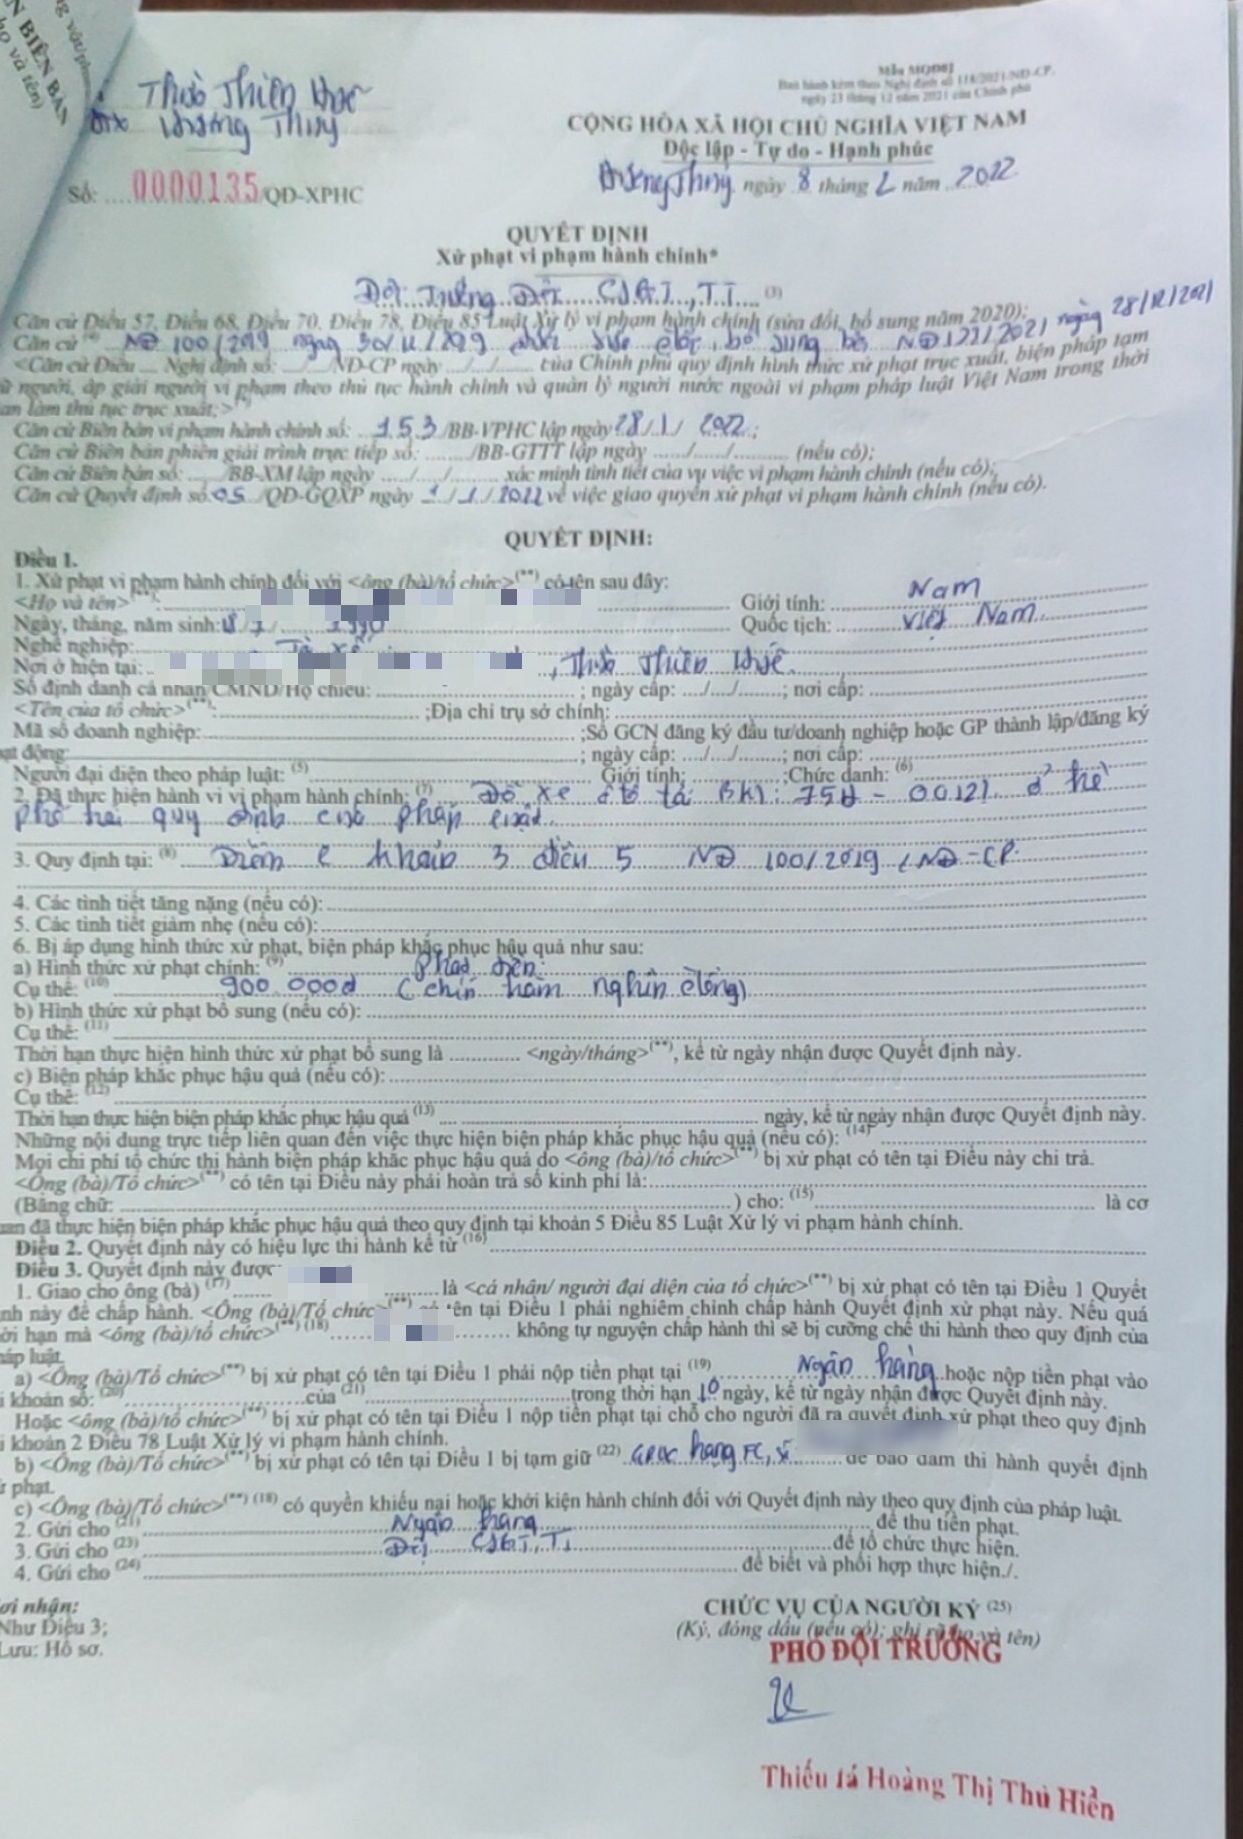 N BIÊN BẢN
họ và tên)
Thừa Thiên Huế
Hương Thủy
Mẫu MQĐ02
Ban hành kèm theo Nghị định số 118/2021/NĐ-CP,
ngày 23 tháng 12 năm 2021 của Chính phủ
CỘNG HÒA XÃ HỘI CHỦ NGHĨA VIỆT NAM
Độc lập - Tự do - Hạnh phúc
Số: ....0000135/QĐ-XPHC
Hương Thủy ngày 8 tháng 2 năm 2022
QUYẾT ĐỊNH
Xử phạt vi phạm hành chính*
Đội Trưởng Đội CSGT, TT (3)
Căn cứ Điều 57, Điều 68, Điều 70, Điều 78, Điều 85 Luật Xử lý vi phạm hành chính (sửa đổi, bổ sung năm 2020);
Căn cứ NĐ 100/2019 ngày 30/12/2019 được sửa đổi, bổ sung bởi NĐ 123/2021 ngày 28/12/2021
<Căn cứ Điều ... Nghị định số: .../.../NĐ-CP ngày .../.../... của Chính phủ quy định hình thức xử phạt trục xuất, biện pháp tạm
ữ người, áp giải người vi phạm theo thủ tục hành chính và quản lý người nước ngoài vi phạm pháp luật Việt Nam trong thời
an làm thủ tục trục xuất;>
Căn cứ Biên bản vi phạm hành chính số: 153/BB-VPHC lập ngày 28/1/2022;
Căn cứ Biên bản phiên giải trình trực tiếp số: ......./BB-GTTT lập ngày ...../...../......... (nếu có);
Căn cứ Biên bản số: ...../BB-XM lập ngày ...../...../......... xác minh tình tiết của vụ việc vi phạm hành chính (nếu có);
Căn cứ Quyết định số 05/QĐ-GQXP ngày 1/1/2022 về việc giao quyền xử phạt vi phạm hành chính (nếu có).
QUYẾT ĐỊNH:
Điều 1.
1. Xử phạt vi phạm hành chính đối với <ông (bà)/tổ chức>(**) có tên sau đây:
<Họ và tên>(**): Giới tính: Nam
Ngày, tháng, năm sinh: Quốc tịch: Việt Nam
Nghề nghiệp: Tài xế
Nơi ở hiện tại: , Thừa Thiên Huế
Số định danh cá nhân/CMND/Hộ chiếu: ; ngày cấp: ..../..../.......; nơi cấp:
<Tên của tổ chức>(**): ;Địa chỉ trụ sở chính:
Mã số doanh nghiệp: ;Số GCN đăng ký đầu tư/doanh nghiệp hoặc GP thành lập/đăng ký
ạt động: ; ngày cấp: ..../..../.......; nơi cấp:
Người đại diện theo pháp luật: (5) Giới tính: ;Chức danh: (6)
2. Đã thực hiện hành vi vi phạm hành chính: (7) Đỗ xe ô tô tải BKS: 75H - 00121 ở hè
phố trái quy định của pháp luật
3. Quy định tại: (8) Điểm e khoản 3 điều 5 NĐ 100/2019/NĐ-CP
4. Các tình tiết tăng nặng (nếu có):
5. Các tình tiết giảm nhẹ (nếu có):
6. Bị áp dụng hình thức xử phạt, biện pháp khắc phục hậu quả như sau:
a) Hình thức xử phạt chính: (9) Phạt tiền
Cụ thể: (10) 900.000đ (chín trăm nghìn đồng)
b) Hình thức xử phạt bổ sung (nếu có):
Cụ thể: (11)
Thời hạn thực hiện hình thức xử phạt bổ sung là ........... <ngày/tháng>(**), kể từ ngày nhận được Quyết định này.
c) Biện pháp khắc phục hậu quả (nếu có):
Cụ thể: (12)
Thời hạn thực hiện biện pháp khắc phục hậu quả (13) ngày, kể từ ngày nhận được Quyết định này.
Những nội dung trực tiếp liên quan đến việc thực hiện biện pháp khắc phục hậu quả (nếu có): (14)
Mọi chi phí tổ chức thi hành biện pháp khắc phục hậu quả do <ông (bà)/tổ chức>(**) bị xử phạt có tên tại Điều này chi trả.
<Ông (bà)/Tổ chức>(**) có tên tại Điều này phải hoàn trả số kinh phí là:
(Bằng chữ: ) cho: (15) là cơ
uan đã thực hiện biện pháp khắc phục hậu quả theo quy định tại khoản 5 Điều 85 Luật Xử lý vi phạm hành chính.
Điều 2. Quyết định này có hiệu lực thi hành kể từ (16)
Điều 3. Quyết định này được
1. Giao cho ông (bà) (17) là <cá nhân/ người đại diện của tổ chức>(**) bị xử phạt có tên tại Điều 1 Quyết
nh này để chấp hành. <Ông (bà)/Tổ chức>(**) có tên tại Điều 1 phải nghiêm chỉnh chấp hành Quyết định xử phạt này. Nếu quá
ời hạn mà <ông (bà)/tổ chức>(**) (18) không tự nguyện chấp hành thì sẽ bị cưỡng chế thi hành theo quy định của
háp luật.
a) <Ông (bà)/Tổ chức>(**) bị xử phạt có tên tại Điều 1 phải nộp tiền phạt tại (19) Ngân hàng hoặc nộp tiền phạt vào
i khoản số: (20) của (21) trong thời hạn 10 ngày, kể từ ngày nhận được Quyết định này.
Hoặc <ông (bà)/tổ chức>(**) bị xử phạt có tên tại Điều 1 nộp tiền phạt tại chỗ cho người đã ra quyết định xử phạt theo quy định
i khoản 2 Điều 78 Luật Xử lý vi phạm hành chính.
b) <Ông (bà)/Tổ chức>(**) bị xử phạt có tên tại Điều 1 bị tạm giữ (22) GPLX hạng FC, số để bảo đảm thi hành quyết định
ử phạt.
c) <Ông (bà)/Tổ chức>(**) (18) có quyền khiếu nại hoặc khởi kiện hành chính đối với Quyết định này theo quy định của pháp luật.
2. Gửi cho (21) Ngân hàng để thu tiền phạt.
3. Gửi cho (23) Đội CSGT, TT để tổ chức thực hiện.
4. Gửi cho (24) để biết và phối hợp thực hiện./.
ơi nhận:
Như Điều 3;
Lưu: Hồ sơ.
CHỨC VỤ CỦA NGƯỜI KÝ (25)
(Ký, đóng dấu (nếu có); ghi rõ họ và tên)
PHÓ ĐỘI TRƯỞNG
Thiếu tá Hoàng Thị Thu Hiền